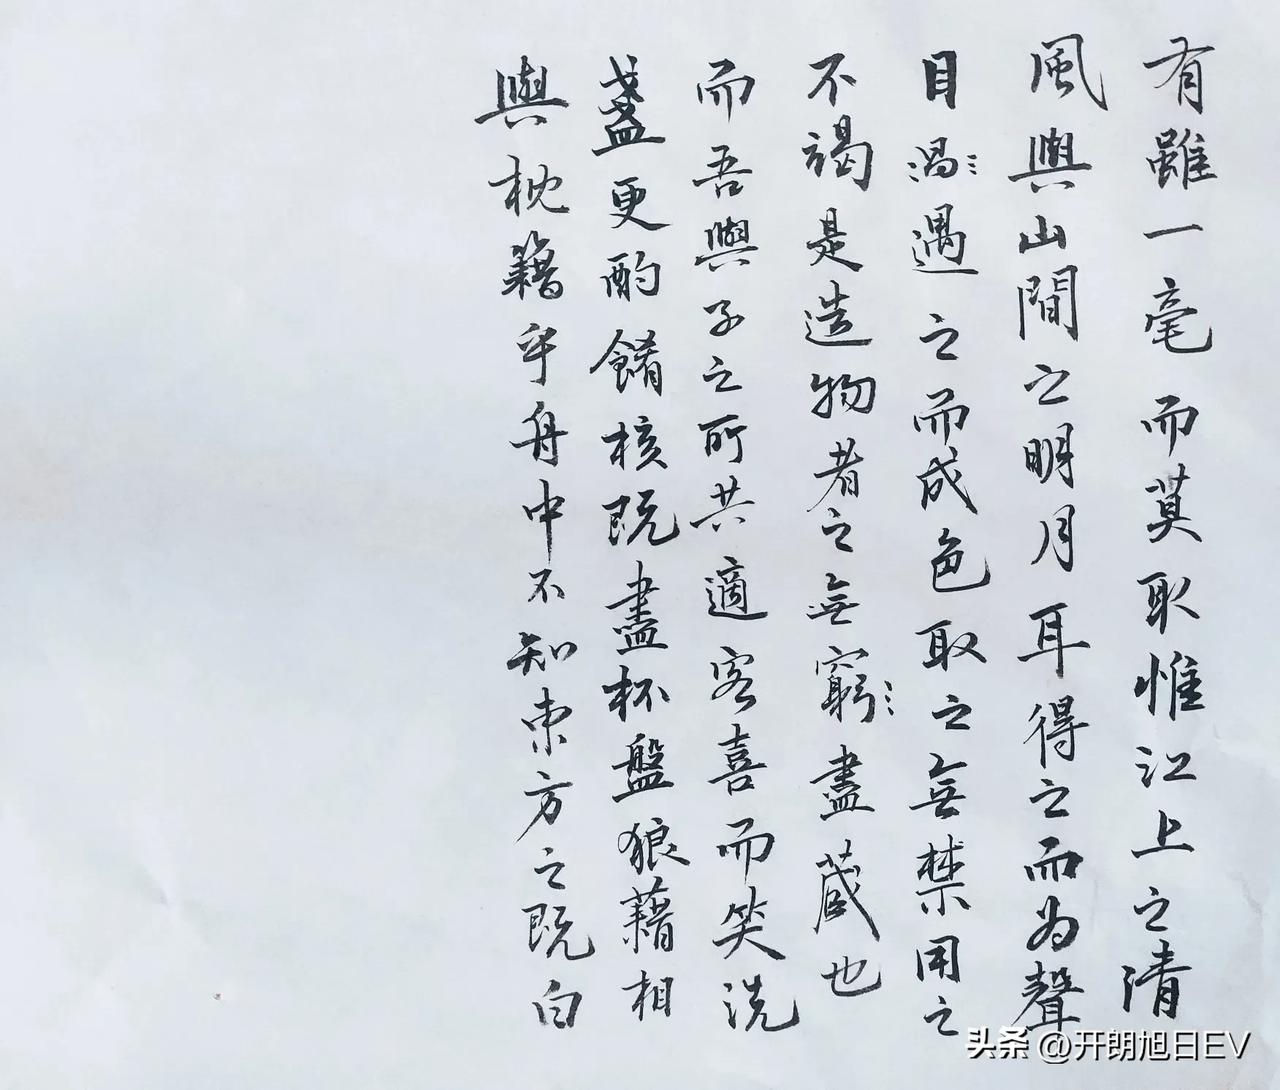 有雖一毫而莫取惟江上之清
風與山間之明月耳得之而為聲
目遇之而成色取之無禁用之
不竭是造物者之無窮盡藏也
而吾與子之所共適客喜而笑洗
盞更酌餚核既盡杯盤狼藉相
與枕籍乎舟中不知東方之既白
头条 @开朗旭日EV